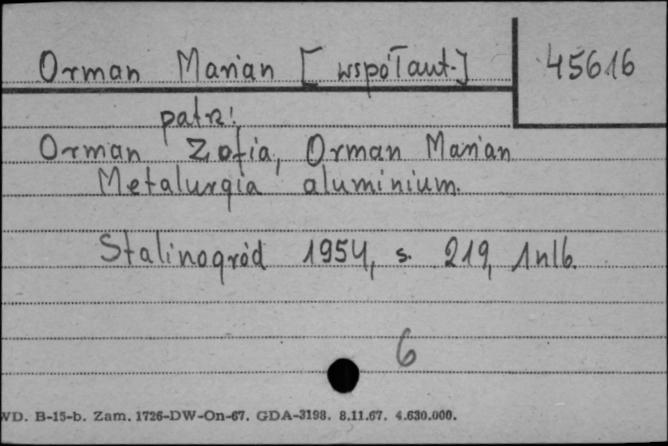 Orman Marian [współaut.]
45616
patrz:
Orman Zofia, Orman Marian
Metalurgia aluminium.
Stalinogród 1954, s. 219, 1 nlb.
6
WD. B-15-b. Zam. 1726-DW-On-67. GDA-3198. 8.11.67. 4.630.000.